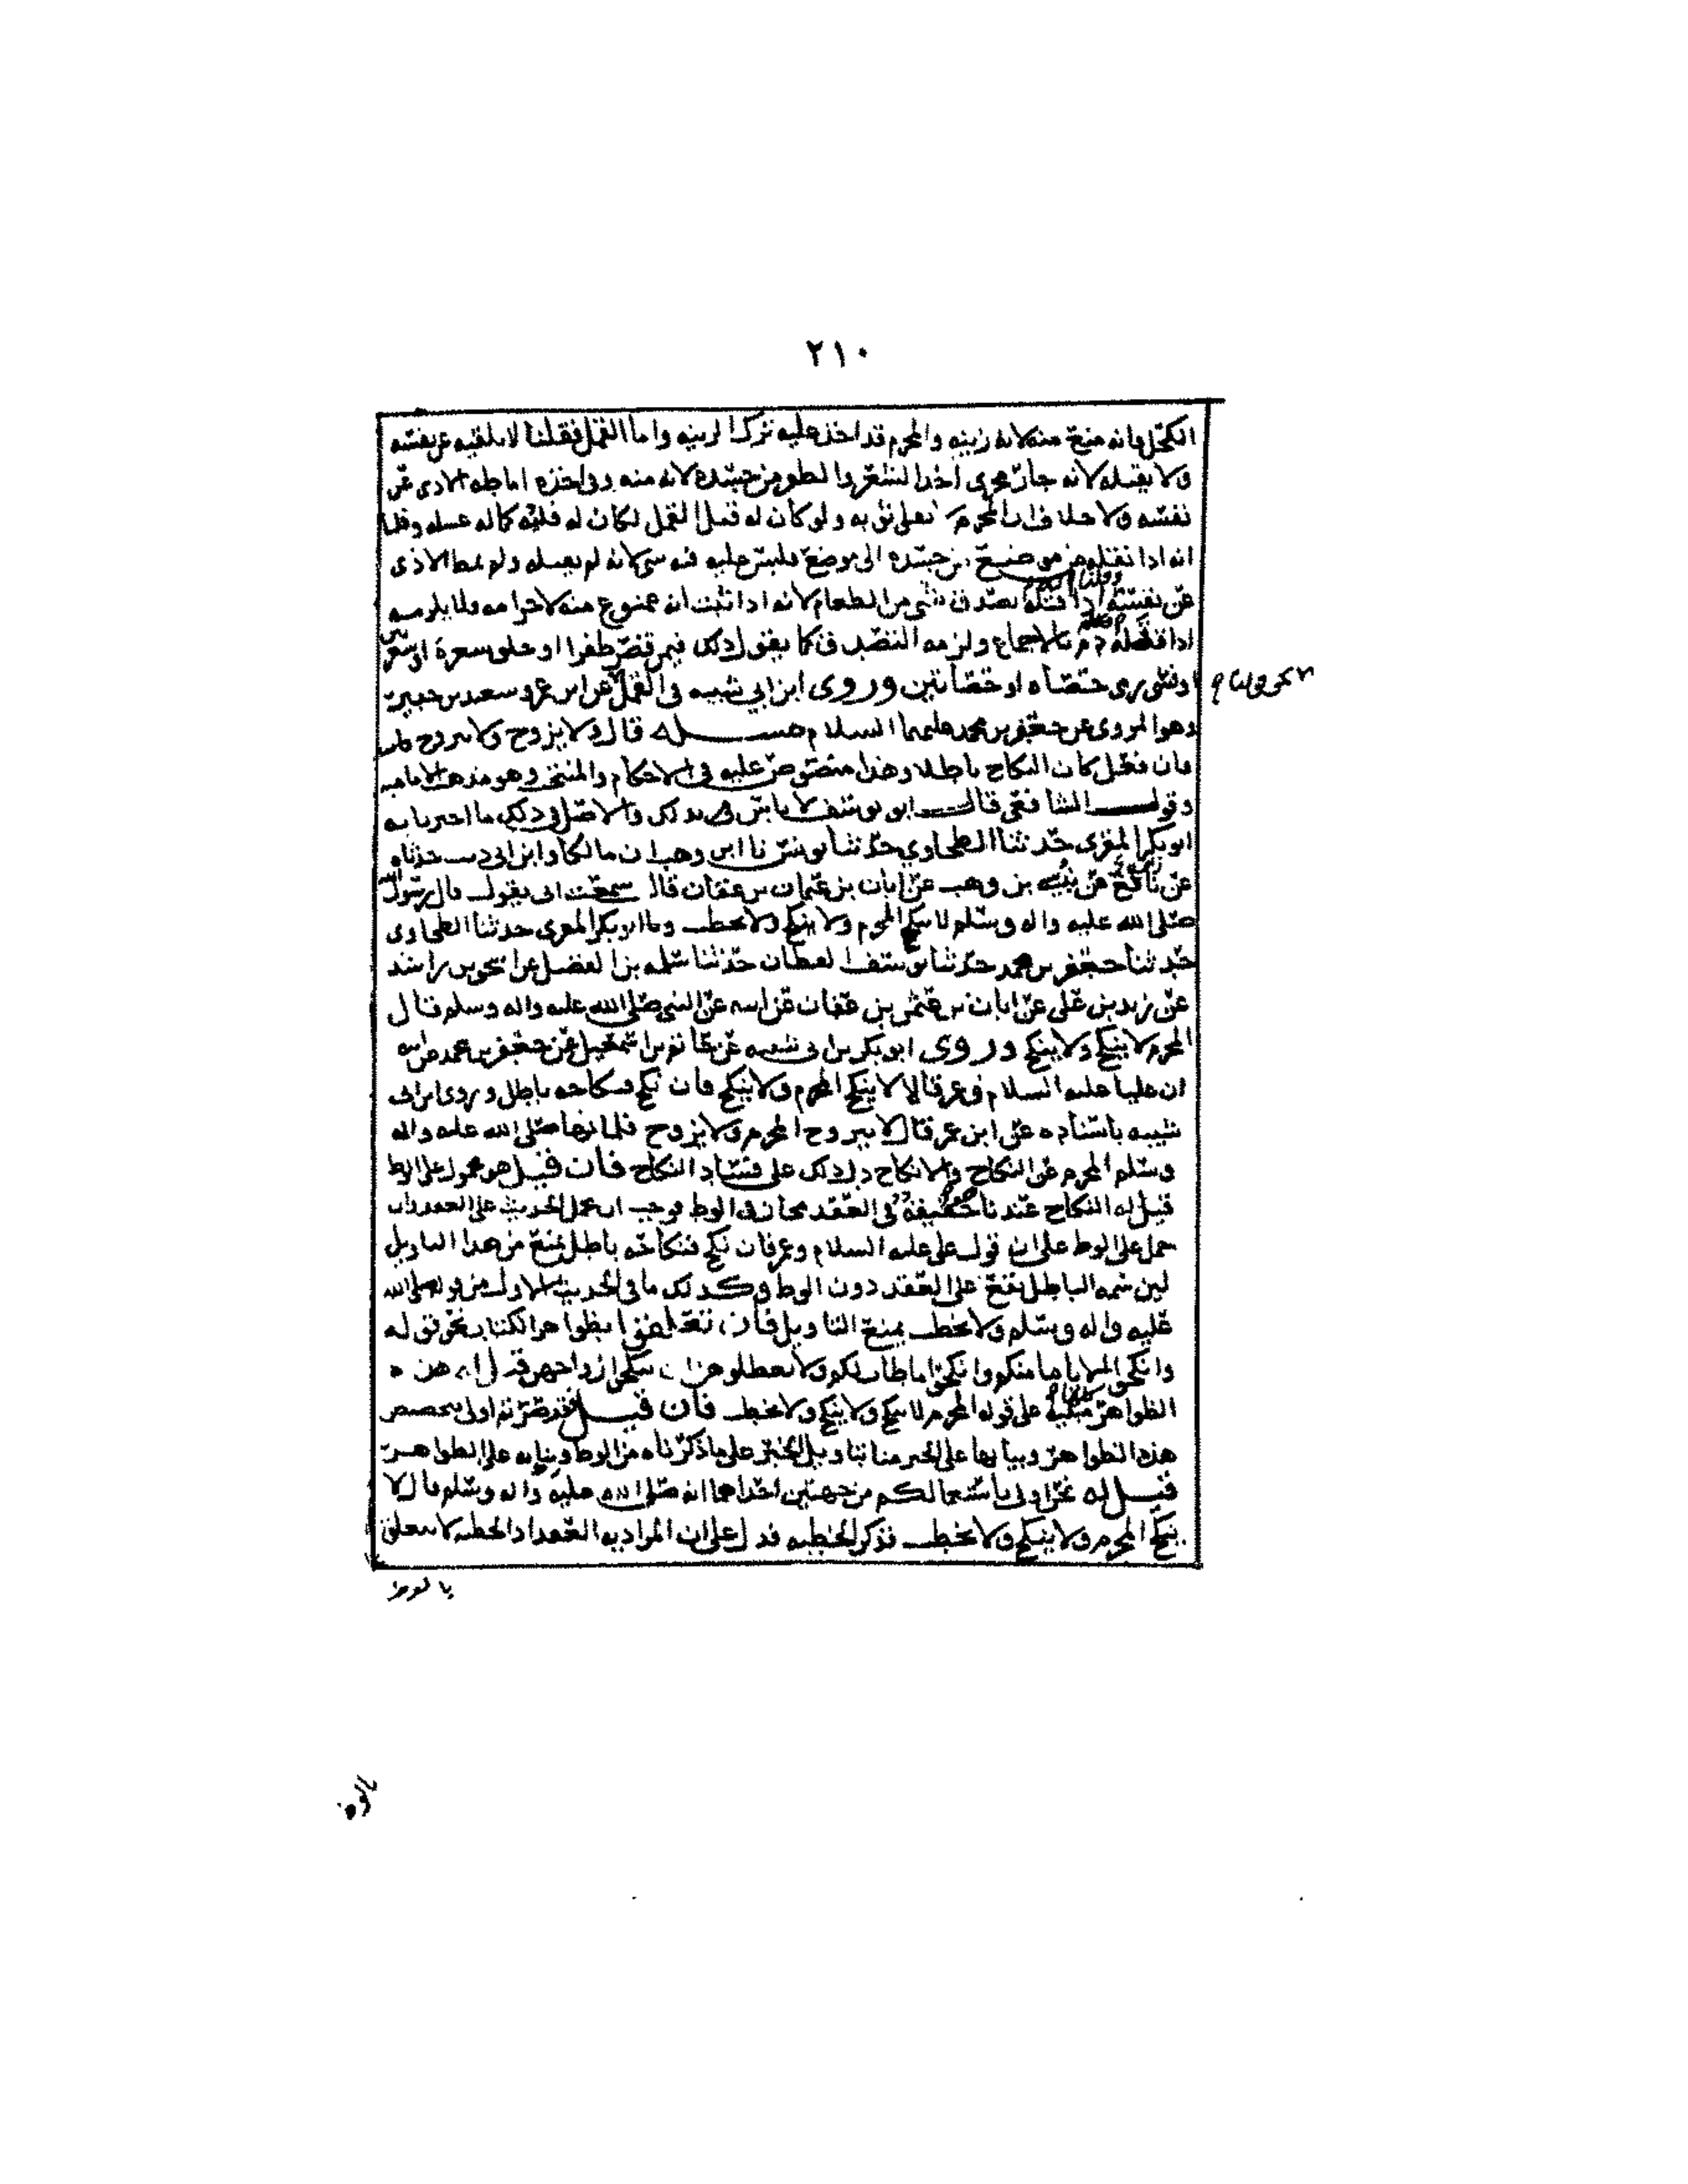 ٢١٠
الكحل فانه منع منه لانه زينه والمحرم قد اخذ عليه ترك الزينه واما القمل فقلنا لا يلقيه عن نفسه
ولا يقتله لانه جار مجرى اخذ الشعر والظفر من جسده لانه منه وفي اخذه اماطه الاذى عن
نفسه ولا خلاف ان المحرم يفلي ثوبه ولو كان له قتل القمل لكان له كما له غسله وقلنا
انه اذا نقله من موضع من جسده الى موضع فليس عليه فيه شي لانه لم يقتله ولم يمط الاذى
عن نفسه وقلنا اذا قتله تصدق بشي من الطعام لانه اذا ثبت انه ممنوع منه لاحرامه ولا يلزمه
اذا قتله دم بالاجماع ولزمه التصدق كما يقول ذلك فيمن قصر ظفرا او حلق شعرة او شعرتين
او فيمن رمى حصاه او حصاتين وروى ابن ابي شيبه في القمل عن ابن عمر وسعيد بن جبير
وهو المروى عن جعفر بن محمد عليهما السلام مسئله قال ولا يزوج ولا يتزوج
فان فعل كان النكاح باطلا وهذا منصوص عليه في الاحكام والمنتخب وهو مذهب الاماميه
وقول الشافعي قال ابو يوسف لا باس بذلك والاصل في ذلك ما اخبرنا به
ابو بكر المقرى حدثنا الطحاوي حدثنا يونس نا ابن وهب ان مالكا وابن ابي ذيب حدثاه
عن نافع عن نبيه بن وهب عن ابان بن عثمان بن عفان قال سمعت ابي يقول قال رسول الله
صلى الله عليه واله وسلم لا ينكح المحرم ولا ينكح ولا يخطب ونا ابو بكر المقرى حدثنا الطحاوى
حدثنا جعفر بن محمد حدثنا يوسف القطان حدثنا سلمه بن الفضل عن اسحق بن راشد
عن زيد بن على عن ابان بن عثمن بن عفان عن ابيه عن النبي صلى الله عليه واله وسلم قال
المحرم لا ينكح ولا ينكح وروى ابو بكر بن ابي شيبه عن حاتم بن اسمعيل عن جعفر بن محمد عن ابيه
ان عليا عليه السلام وعمر قالا لا ينكح المحرم ولا ينكح فان نكح فنكاحه باطل وروى ابن ابي
شيبه باسناده عن ابن عمر قال لا يتزوج المحرم ولا يزوج فلما نها صلى الله عليه واله
وسلم المحرم عن النكاح والانكاح دل ذلك على فساد النكاح فان قيل هو محمول على الوط
قيل له النكاح عندنا حقيقة في العقد مجاز في الوط فوجب ان يحمل الحديث على العقد دون
حمل على الوط على ان قول على عليه السلام وعمر فان نكح فنكاحه باطل يمنع من هذا التاويل
لين سمه الباطل تقع على العقد دون الوط وكذلك ما في الحديث الاول من قوله صلى الله
عليه واله وسلم ولا يخطب يمنع التاويل فان تعلقوا بظواهر الكتاب نحو قوله
وانكحوا الايامى منكم وانكحوا ما طاب لكم ولا تعضلوهن ان ينكحن ازواجهن قيل له هذه
الظواهر مبنيه على قوله المحرم لا ينكح ولا ينكح ولا يخطب فان قيل فقد صرتم اولى بتخصيص
هذه الظواهر وبنايها على الخبر منا بتاويل الخبر على ما ذكرناه من الوط وبنايه على الظواهر
قيل له نحن اولى باستعمالكم من جهتين احداهما انه صلى الله عليه واله وسلم قال لا
ينكح المحرم ولا ينكح ولا يخطب فذكر الخطبه فدل على ان المراد به العقد اذ الخطبه لا تتعلق
بالوط
بالوط